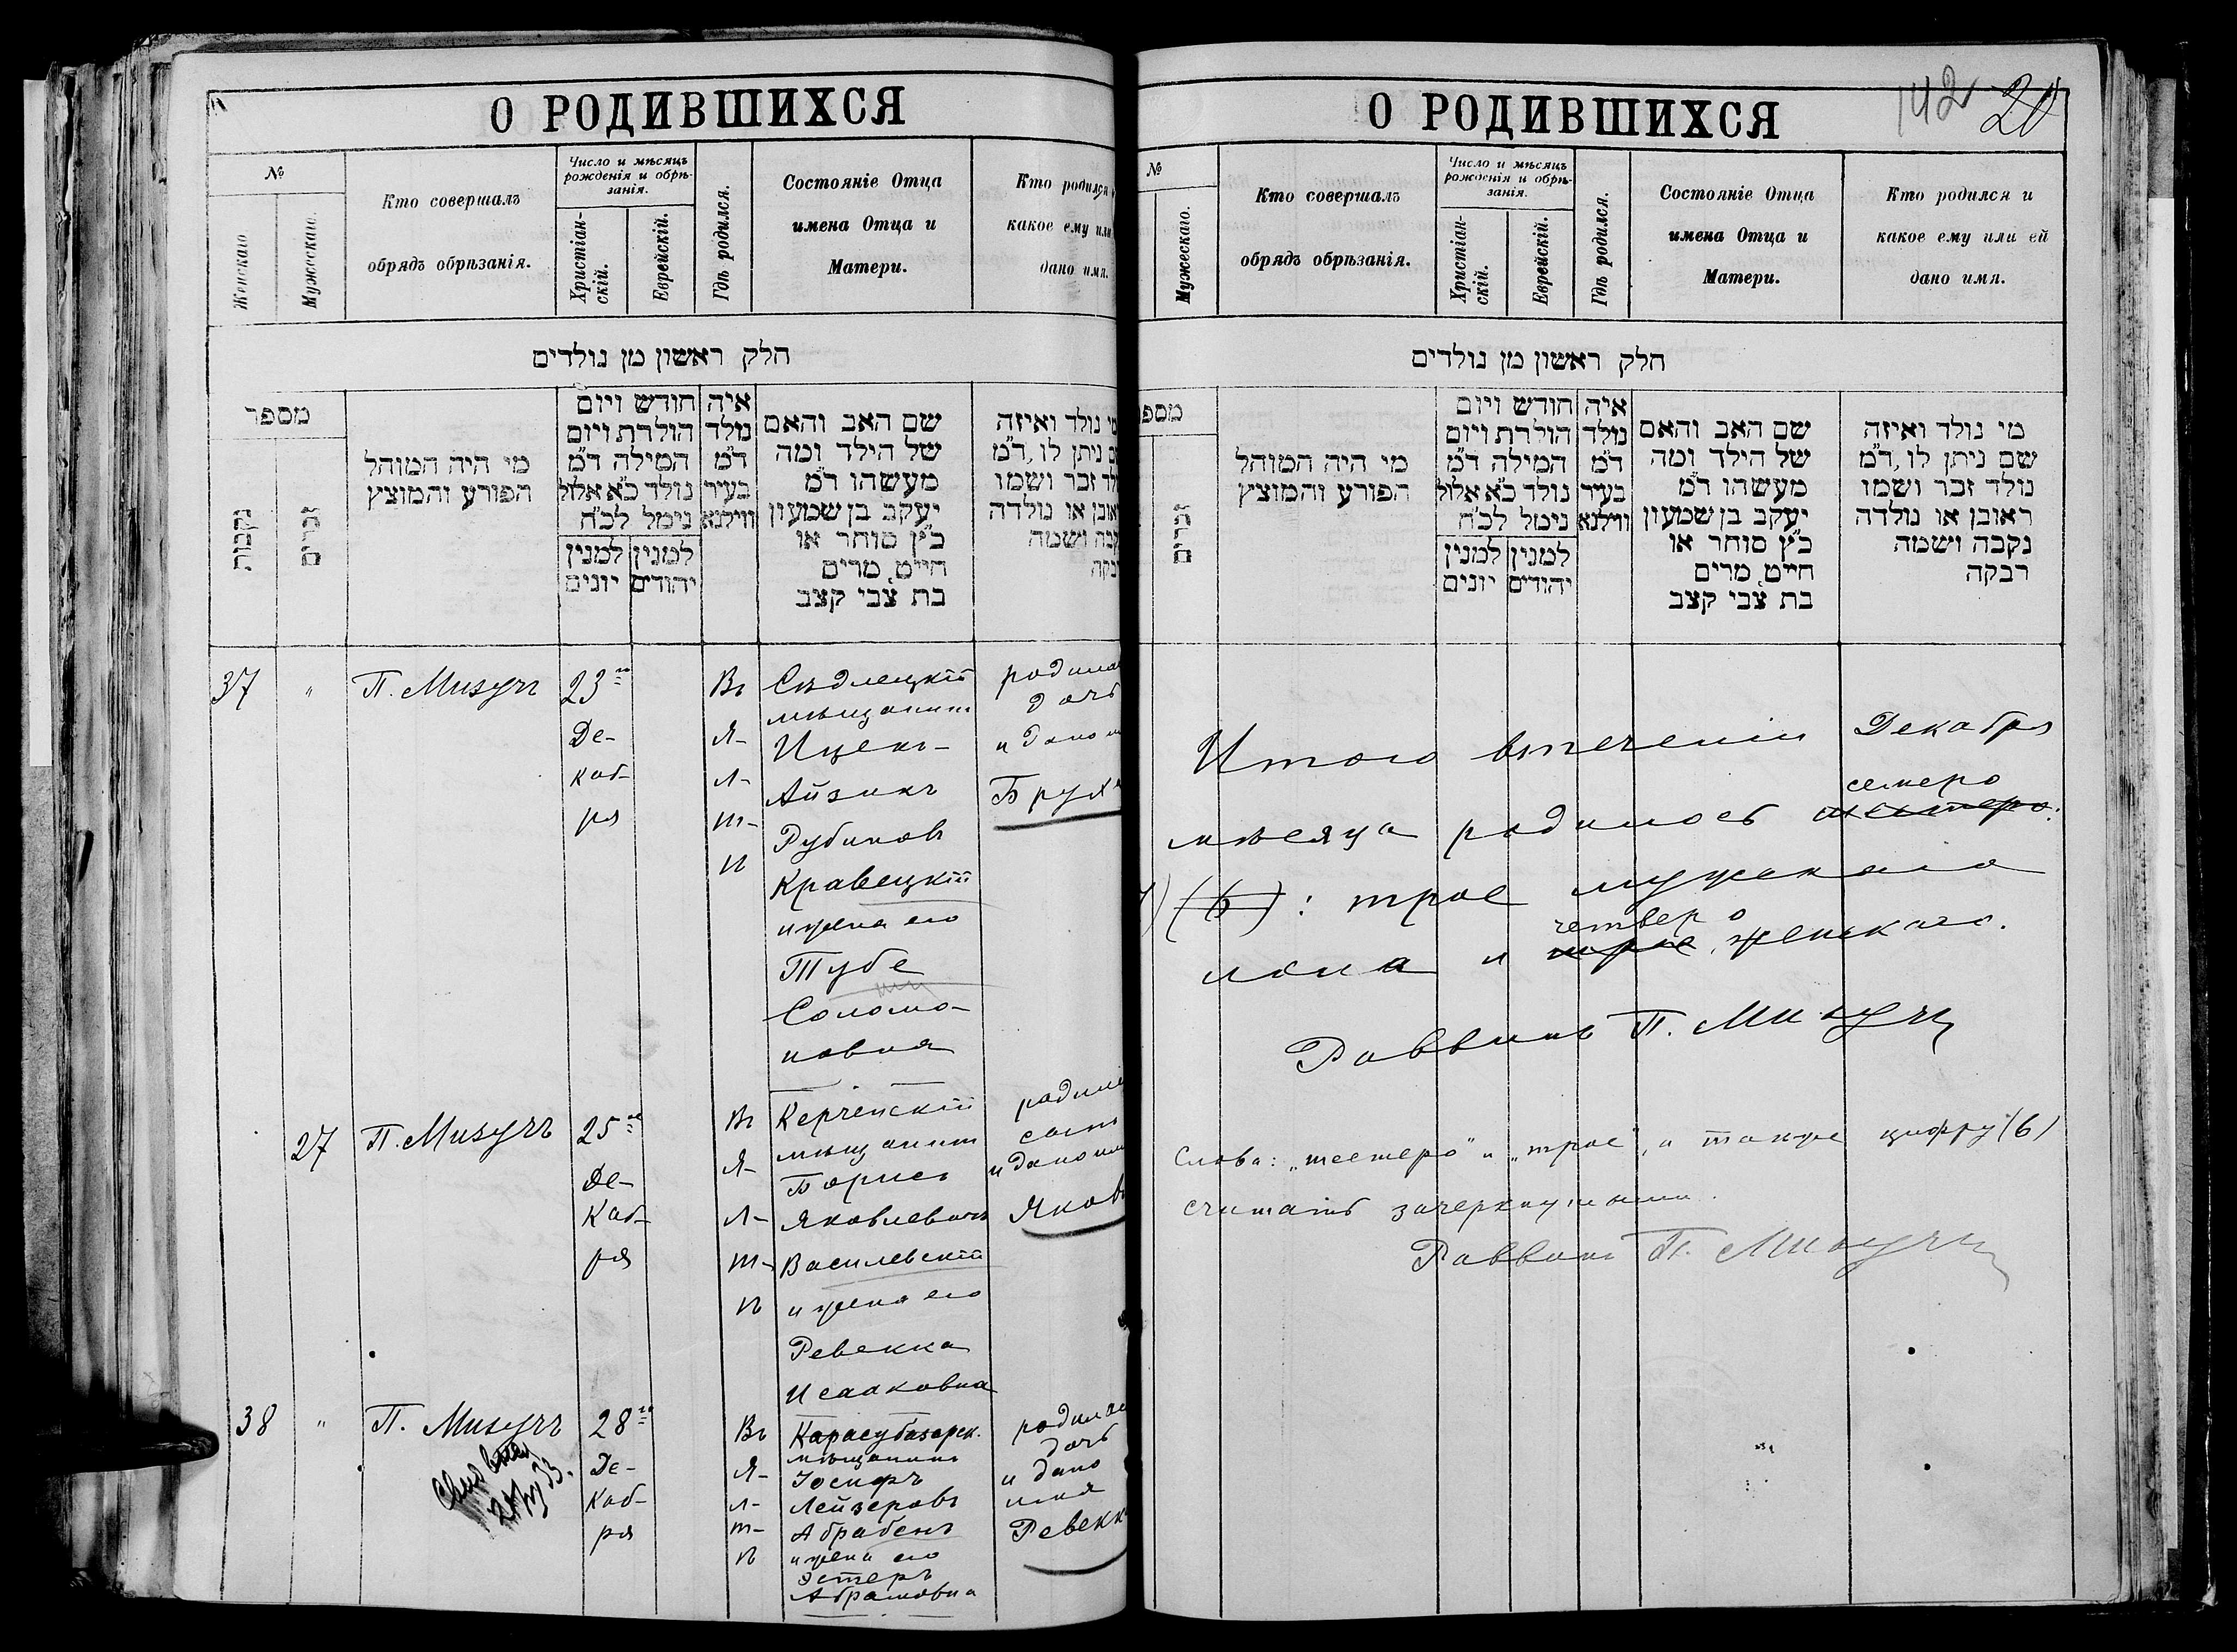 О РОДИВШИХСЯ
№
Женскаго
Мужескаго.
Кто совершалъ
обрядъ обрѣзанія.
Число и мѣсяцъ
рожденія и обрѣ-
занія.
Христіан-
скій.
Еврейскій.
Гдѣ родился.
Состояніе Отца
имена Отца и
Матери.
Кто родился
какое ему или
дано имя.
חלק ראשון מן נולדים
מספר
נקבות
זכרים
מי היה המוהל
הפורע והמוצץ
חודש ויום
הולדת ויום
המילה ד״מ
נולד כ״א אלול
נימל לכ״ח
למנין יהודים
למנין יונים
איה
נולד
ד״מ
בעיר
ווילנא
שם האב והאם
של הילד ומה
מעשהו ד״מ
יעקב בן שמעון
כ״ץ סוחר או
חייט, מרים
בת צבי קצב
נולד ואיזה
ניתן לו, ד״מ
זכר ושמו
או נולדה
ושמה
37 " П. Мизучъ 23го Де-
каб-
ря
Въ
Я-
л-
т-
ѣ
Сѣдлецкій
мѣщанинъ
Ицекъ-
Айзикъ
Рубиновъ
Кравецкій
и жена его
Тубе
Соломо-
новна
дочь
и дано
Брух
27 П. Мизучъ 25го
Де-
каб-
ря
Въ
Я-
л-
т-
ѣ
Керченскій
мѣщанинъ
Борисъ
Яковлевичъ
Василевскій
и жена его
Ревекка
Исааковна
сынъ
и дано
Яковъ
38 " П. Мизучъ 28го
Де-
каб-
ря
Въ
Я-
л-
т-
ѣ
Карасубазарск.
мѣщанинъ
Іосифъ
Лейзеровъ
Абрабенъ
и жена его
Эстеръ
Абрамовна
дочь
и дано
имя
Ревекк
О РОДИВШИХСЯ
142 20
№
Мужескаго.
Кто совершалъ
обрядъ обрѣзанія.
Число и мѣсяцъ
рожденія и обрѣ-
занія.
Христіан-
скій.
Еврейскій.
Гдѣ родился.
Состояніе Отца
имена Отца и
Матери.
Кто родился и
какое ему или ей
дано имя.
חלק ראשון מן נולדים
מספ
זכרים
מי היה המוהל
הפורע והמוצץ
חודש ויום
הולדת ויום
המילה ד״מ
נולד כ״א אלול
נימל לכ״ח
למנין יהודים
למנין יונים
איה
נולד
ד״מ
בעיר
ווילנא
שם האב והאם
של הילד ומה
מעשהו ד״מ
יעקב בן שמעון
כ״ץ סוחר או
חייט, מרים
בת צבי קצב
מי נולד ואיזה
שם ניתן לו, ד״מ
נולד זכר ושמו
ראובן או נולדה
נקבה ושמה
רבקה
Итого втеченіи Декабря
семеро
мѣсяца родилось шестеро:
(6): трое мужскаго
четверо
пола и трое женскаго.
Раввинъ П. Мизучъ
Слова: „шестеро" и „трое", а также цифру (6)
считать зачеркнутыми.
Раввинъ П. Мизучъ